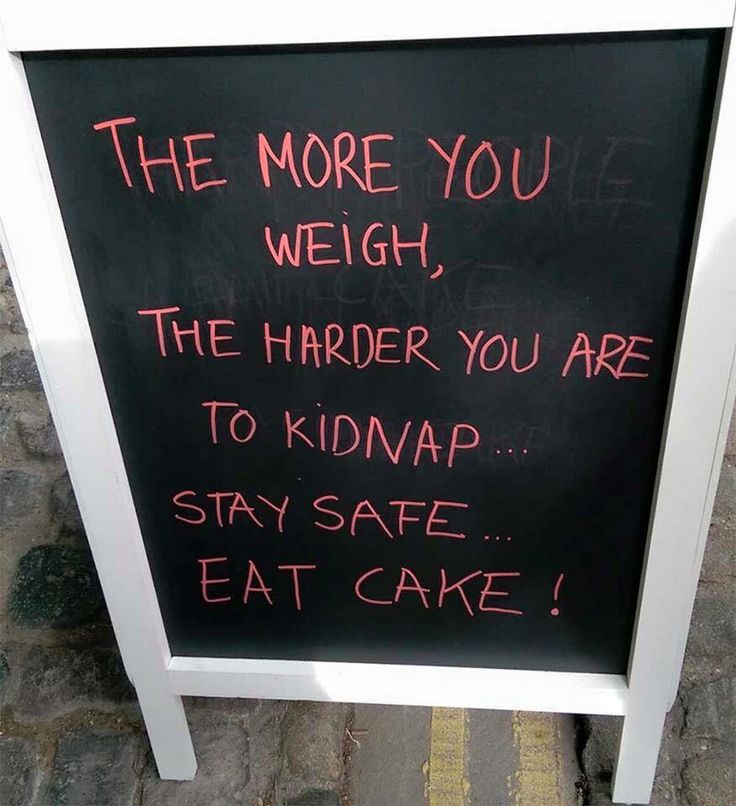 THE MORE YOU
WEIGH,
THE HARDER YOU ARE
TO KIDNAP...
STAY SAFE...
EAT CAKE!